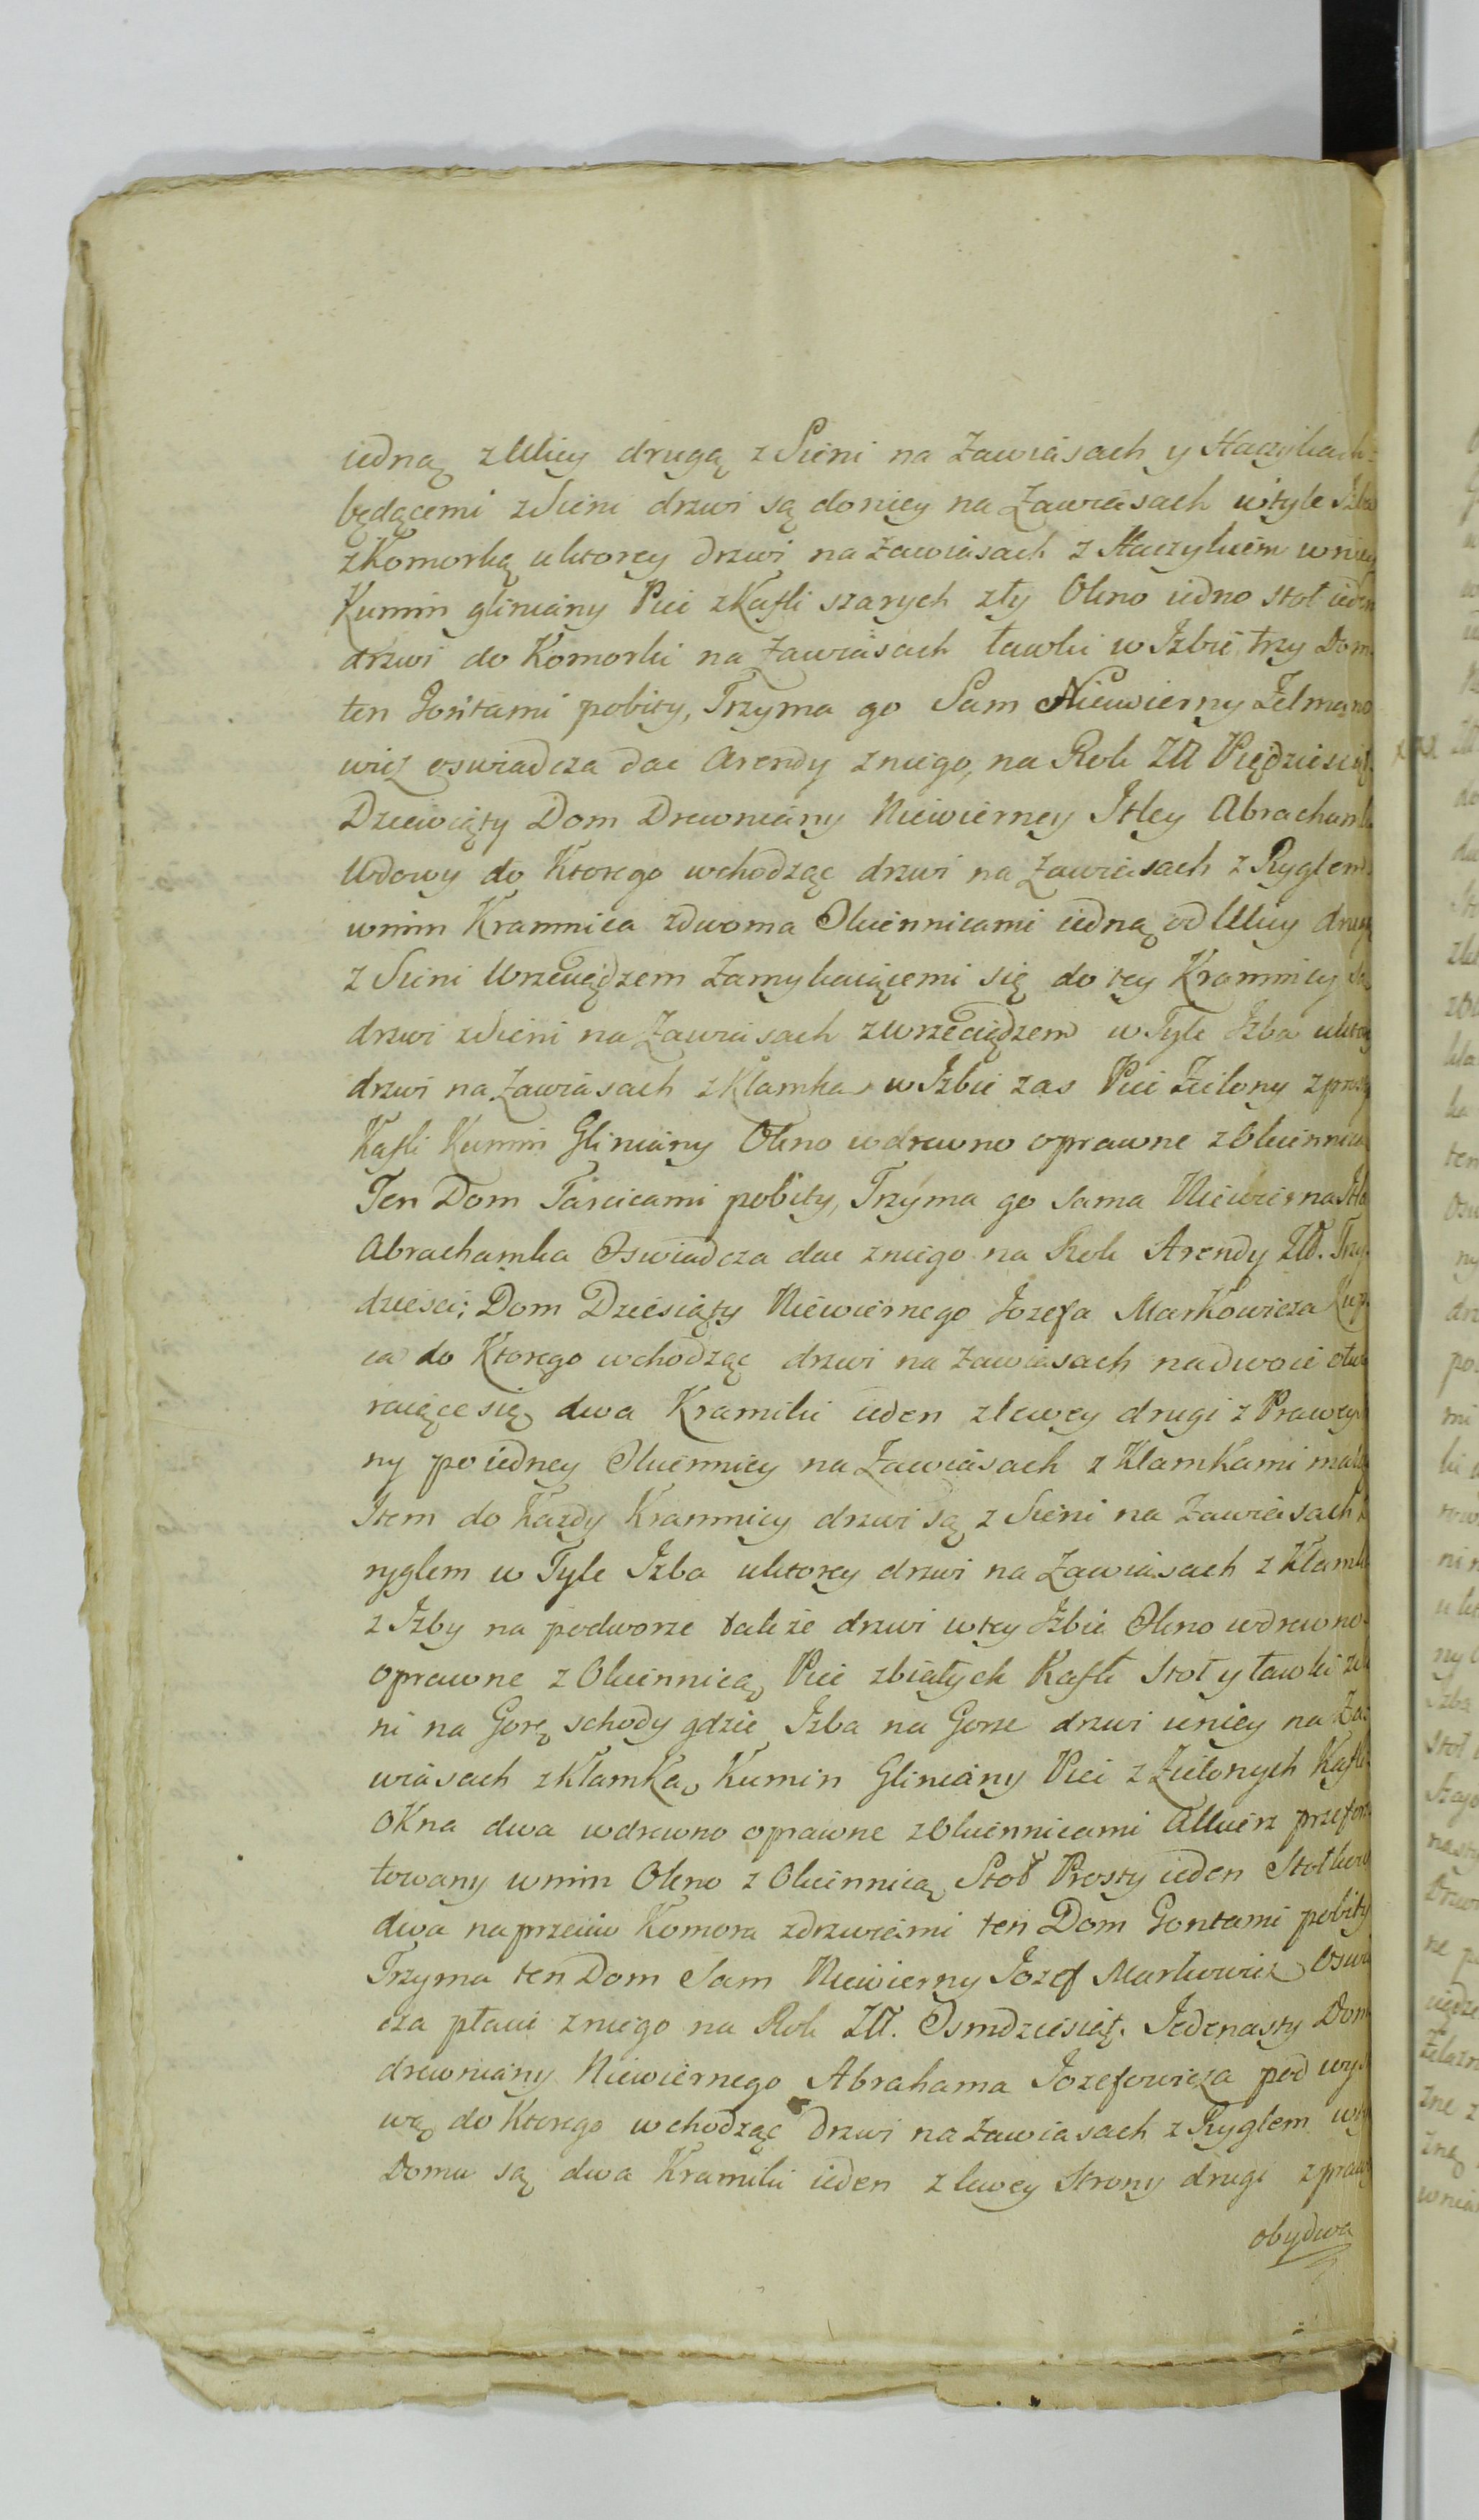 iedną z Ulicy drugą z Sieni na Zawiasach y Haczykach
będącemi z Sieni drzwi są doniey na Zawiasach wtyle Izba
zKomorką uktorey drzwi na zawiasach z Haczykiem wniey
Kumin gliniány Piec zKafli szarych zły Okno iedno stoł ieden
drzwi do Komorki na Zawiasach ławki w Izbie trzy Dom
ten Gontami pobity, Trzyma go Sam Niewierny Zelmano
wicz oswiadcza dac Arendy zniego, na Rok Zł Pięcdziesiąt
Dziewiąty Dom Drewniány Niewierney Itley Abrachamk
Wdowy do Ktorego wchodząc drzwi na Zawiasach z Ryglem
wnim Kramnica zdwoma Okiennicami iedną od Ulicy drugą
z Sieni Wrzeciądzem zamykaiącemi się do tey Kramnicy są
drzwi zSieni na Zawiasach zwrzeciądzem w Tyle Izba uktorey
drzwi na Zawiasach zKlamką w Izbie zas Piec Zielony z prostych
Kafli Kumin Gliniány Okno wdrewno oprawne zOkiennicą
Ten Dom Tarcicami pobity, Trzyma go Sama Niewierna Itla
Abrachamka Oswiadcza dac zniego na Rok Arendy Zł. Trzy
dziesci; Dom Dziesiąty Niewiernego Jozefa Markowicza Kup
ca do Ktorego wchodząc drzwi na zawiasach nadwoie otwie
raiące się, dwa Kramiki ieden zlewey drugi z Prawey
ny poiedney Okiennicy na Zawiasach z Klamkami maią
Item do Kazdy Kramnicy drzwi są z Sieni na Zawiasach z
ryglem w Tyle Izba uktorey drzwi na Zawiasach z Klamką
z Izby na podworze także drzwi wtey Izbie Okno wdrewno
oprawne z Okiennicą, Piec zbiałych Kafli Stoł y ławki zSie
ni na Gorę schody gdzie Izba na Gorze drzwi uniey na Za
wiasach zKlamką, Kumin Gliniány Piec z Zielonych Kafli
OKna dwa wdrewno oprawne zOkiennicami Alkierz przefor
towany wnim Okno z Okiennicą Stoł Prosty ieden Stołkow
dwa naprzeciw Komora zdrzwiámi ten Dom Gontami pobity
Trzyma ten Dom Sam Niewierny Jozef Markowicz Oswiad
cza płaci zniego na Rok Zł. Osmdziesiąt. Jedenasty Dom
drewniány Niewiernego Abrahama Jozefowicza pod wysta
wą do Ktorego wchodząc drzwi na zawiasach z Ryglem wty
Domu są dwa Kramiki ieden z lewey Strony drugi z prawey
obydwa